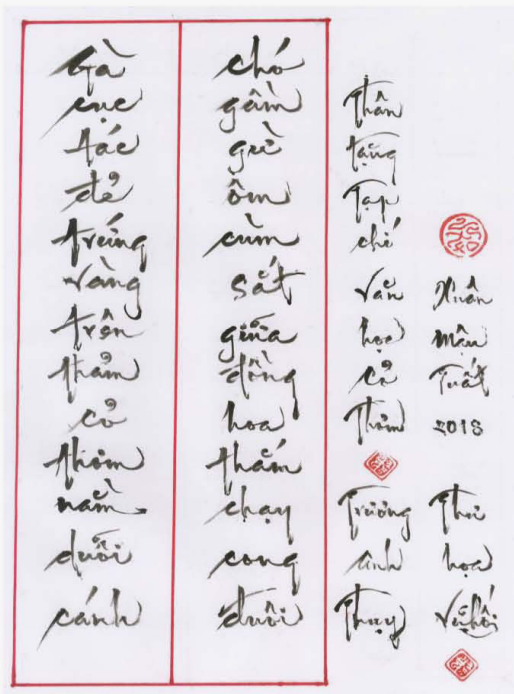 Gà
cục
tác
đẻ
trứng
vàng
trên
thảm
cỏ
thơm
nằm
duỗi
cánh
chó
gầm
gừ
ôm
cùm
sắt
giữa
đồng
hoa
thắm
chạy
cong
đuôi
Thân
tặng
Tạp
chí
Văn
học
Cỏ
Thơm
Trương
Anh
Thụy
Xuân
Mậu
Tuất
2018
Thư
họa
Vũ Hối